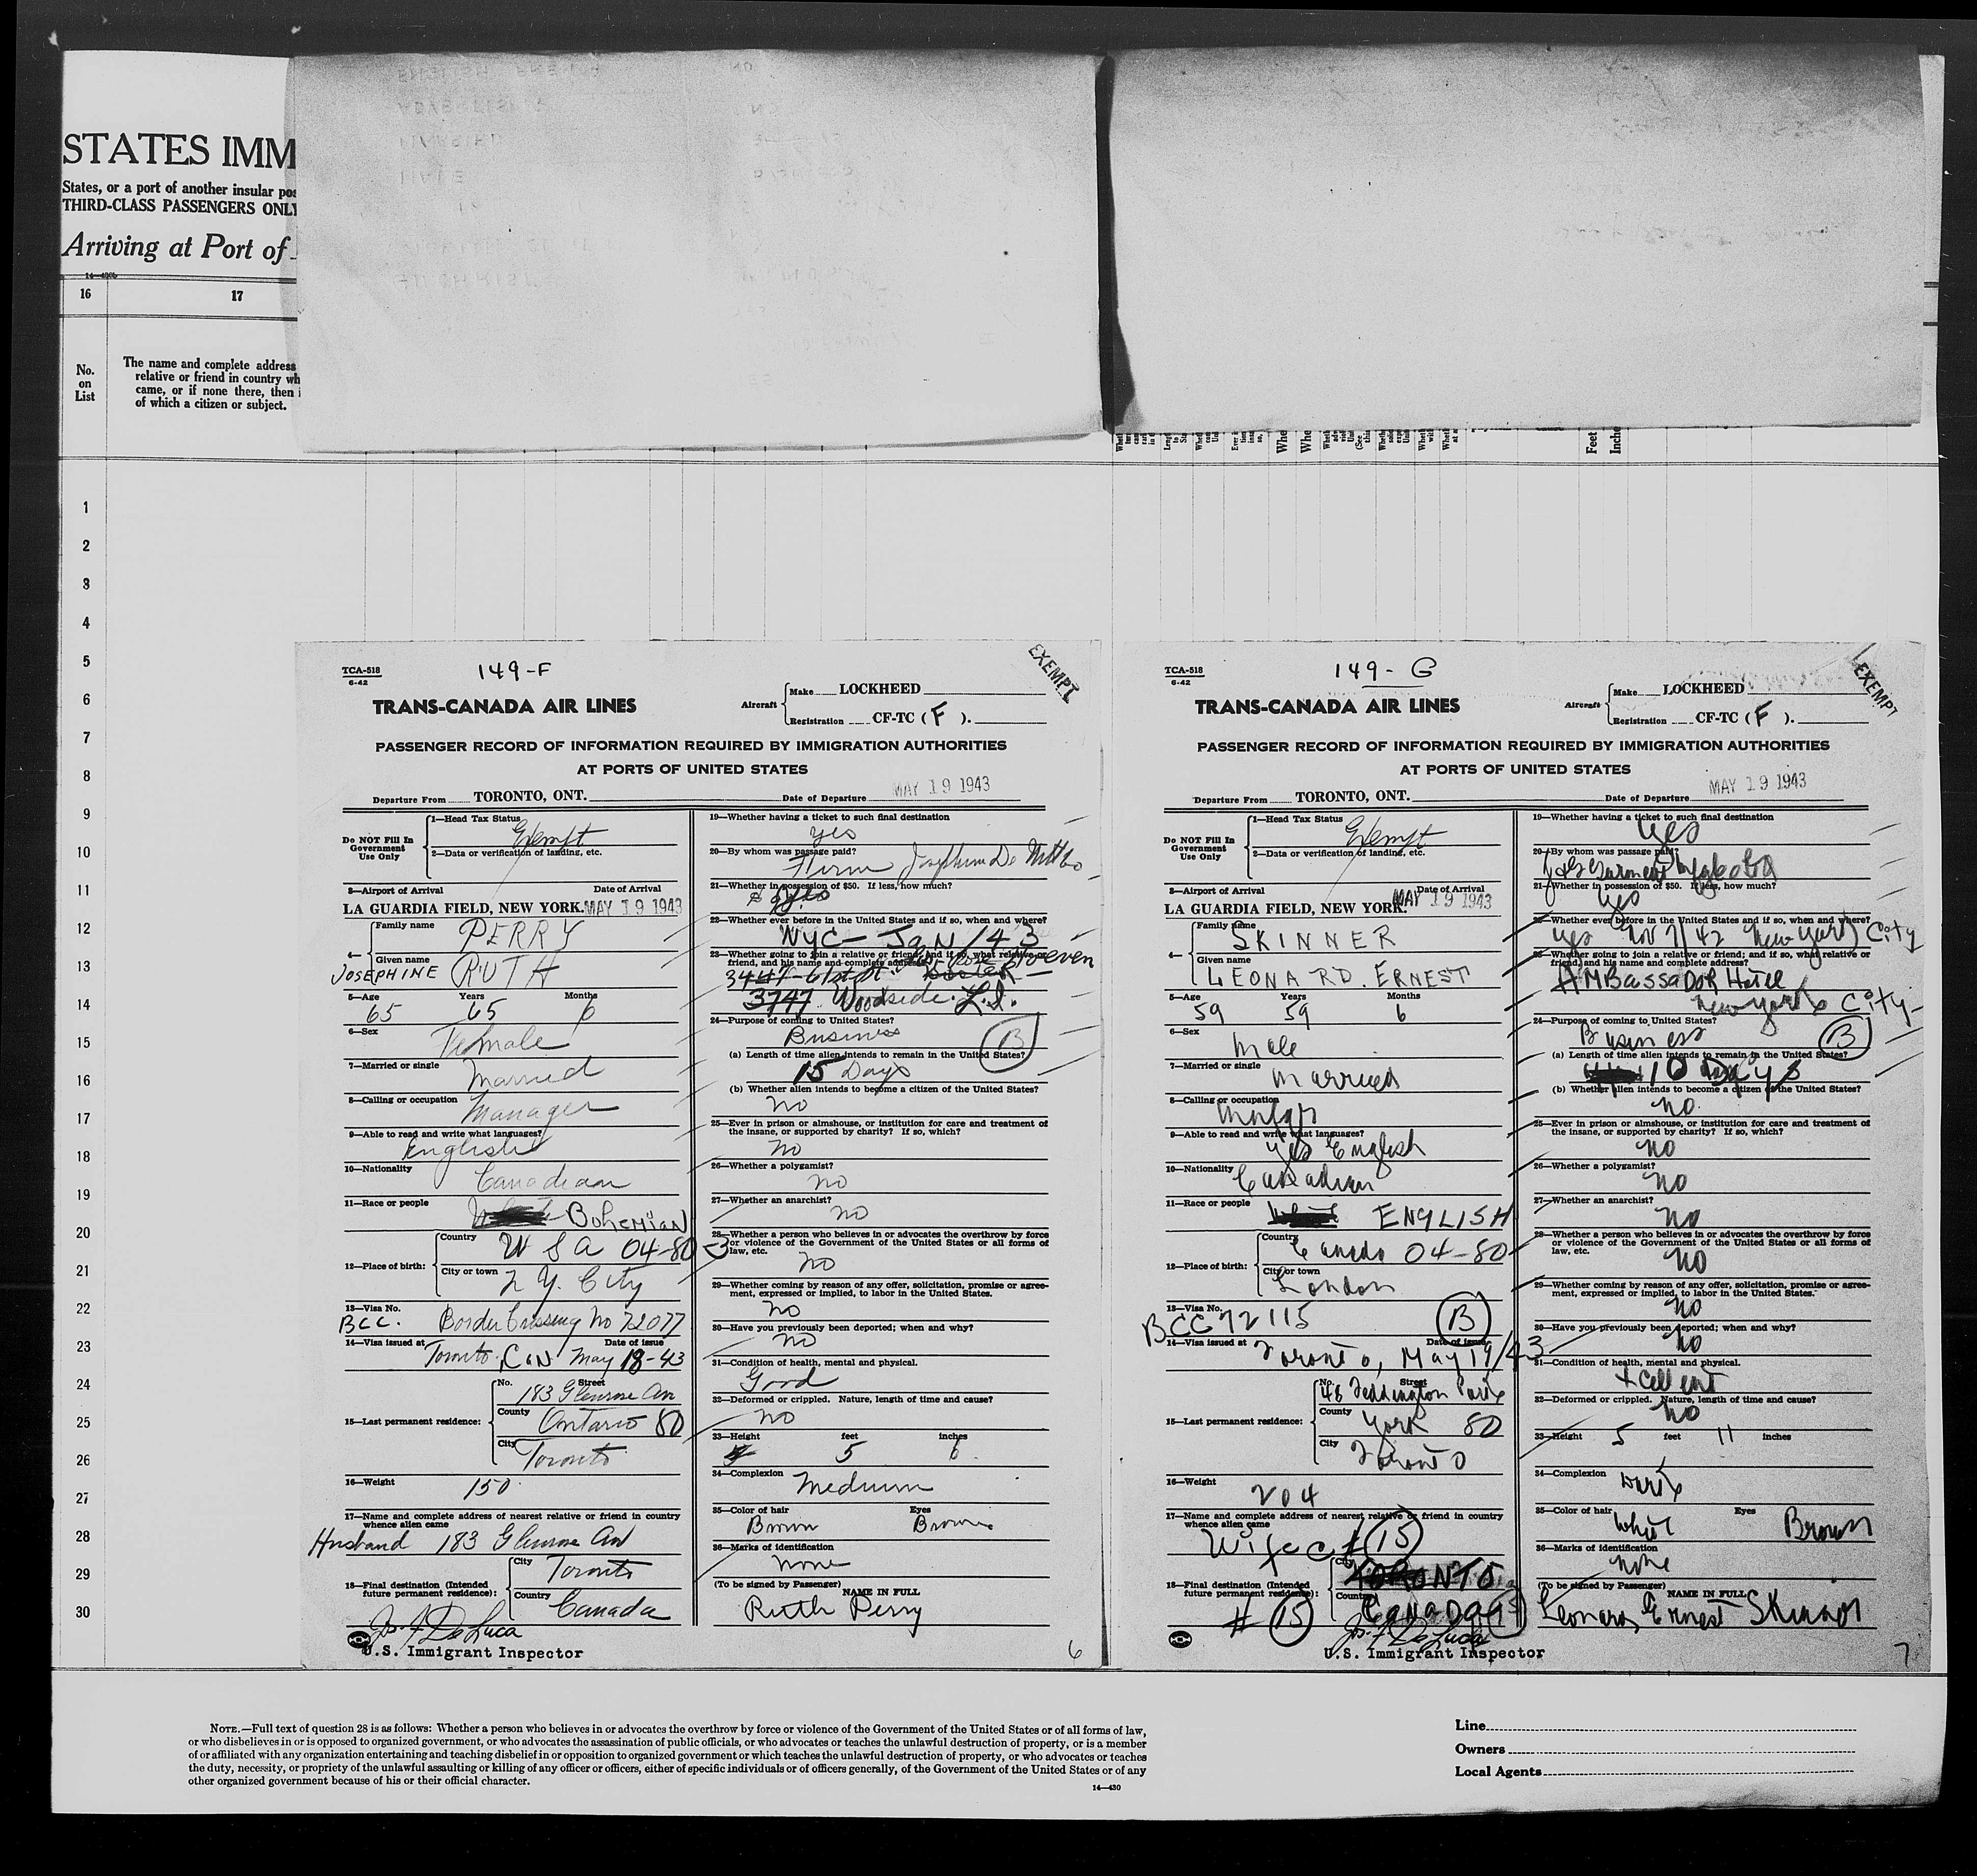 STATES IMM
States, or a port of another insular pos
THIRD-CLASS PASSENGERS ONLY
Arriving at Port of
16 17
No.
on
List
The name and complete address
relative or friend in country wh
came, or if none there, then i
of which a citizen or subject.
Feet
Inche
1
2
3
4
5
6
7
8
9
10
11
12
13
14
15
16
17
18
19
20
21
22
23
24
25
26
27
28
29
30
TCA-518
6-42
149-F
EXEMPT
TRANS-CANADA AIR LINES
Aircraft Make LOCKHEED
Registration CF-TC (F).
PASSENGER RECORD OF INFORMATION REQUIRED BY IMMIGRATION AUTHORITIES
AT PORTS OF UNITED STATES
Departure From TORONTO, ONT. Date of Departure MAY 19 1943
Do NOT Fill In Government Use Only
1—Head Tax Status Exempt
2—Data or verification of landing, etc.
3—Airport of Arrival Date of Arrival
LA GUARDIA FIELD, NEW YORK. MAY 19 1943
4— Family name PERRY
Given name JOSEPHINE RUTH
5—Age Years Months
65 65 6
6—Sex Female
7—Married or single Married
8—Calling or occupation Manager
9—Able to read and write what languages? English
10—Nationality Canadian
11—Race or people BOHEMIAN
12—Place of birth: Country U S A 04-80
City or town N.Y. City
13—Visa No. BCC. Border Crossing No 72077
14—Visa issued at Date of issue
Toronto, CAN May 18-43
15—Last permanent residence: No. Street 183 Glenrose Av
County Ontario 80
City Toronto
16—Weight 150
17—Name and complete address of nearest relative or friend in country
whence alien came
Husband 183 Glenrose Av
18—Final destination (Intended future permanent residence): City Toronto
Country Canada
Jos. F. De Luca
U.S. Immigrant Inspector
19—Whether having a ticket to such final destination
yes
20—By whom was passage paid?
Firm Josephine De
21—Whether in possession of $50. If less, how much?
yes
22—Whether ever before in the United States and if so, when and where?
NYC— Jan/43
23—Whether going to join a relative or friend, and if so, what relative or
friend, and his name and complete address?
61st St.
Woodside L.I.
24—Purpose of coming to United States?
Business B
(a) Length of time alien intends to remain in the United States?
15 Days
(b) Whether alien intends to become a citizen of the United States?
no
25—Ever in prison or almshouse, or institution for care and treatment of
the insane, or supported by charity? If so, which?
no
26—Whether a polygamist?
no
27—Whether an anarchist?
no
28—Whether a person who believes in or advocates the overthrow by force
or violence of the Government of the United States or all forms of
law, etc.
no
29—Whether coming by reason of any offer, solicitation, promise or agree-
ment, expressed or implied, to labor in the United States.
no
30—Have you previously been deported; when and why?
no
31—Condition of health, mental and physical.
Good
32—Deformed or crippled. Nature, length of time and cause?
no
33—Height feet inches
5 6
34—Complexion Medium
35—Color of hair Eyes
Brown Brown
36—Marks of identification
none
(To be signed by Passenger) NAME IN FULL
Ruth Perry
6
TCA-518
6-42
149-G
EXEMPT
TRANS-CANADA AIR LINES
Aircraft Make LOCKHEED
Registration CF-TC (F).
PASSENGER RECORD OF INFORMATION REQUIRED BY IMMIGRATION AUTHORITIES
AT PORTS OF UNITED STATES
Departure From TORONTO, ONT. Date of Departure MAY 19 1943
Do NOT Fill In Government Use Only
1—Head Tax Status Exempt
2—Data or verification of landing, etc.
3—Airport of Arrival Date of Arrival
LA GUARDIA FIELD, NEW YORK. MAY 19 1943
4— Family name SKINNER
Given name LEONARD. ERNEST
5—Age Years Months
59 59 6
6—Sex Male
7—Married or single Married
8—Calling or occupation
9—Able to read and write what languages?
yes English
10—Nationality Canadian
11—Race or people ENGLISH
12—Place of birth: Country Canada 04-80
City or town London
13—Visa No. BCC 72115 B
14—Visa issued at Date of issue
Toronto, May 19/43
15—Last permanent residence: No. Street 48 Teddington Park
County York 80
City Toronto
16—Weight 204
17—Name and complete address of nearest relative or friend in country
whence alien came
Wife # 15
18—Final destination (Intended future permanent residence): City TORONTO
Country CANADA
# 15
Jos. F. De Luca
U.S. Immigrant Inspector
19—Whether having a ticket to such final destination
yes
20—By whom was passage paid?
21—Whether in possession of $50. If less, how much?
yes
22—Whether ever before in the United States and if so, when and where?
yes Nov 7/42 New York City
23—Whether going to join a relative or friend; and if so, what relative or
friend, and his name and complete address?
AMBassaDOR Hotel
New York City
24—Purpose of coming to United States?
Business B
(a) Length of time alien intends to remain in the United States?
10 Days
(b) Whether alien intends to become a citizen of the United States?
no
25—Ever in prison or almshouse, or institution for care and treatment of
the insane, or supported by charity? If so, which?
no
26—Whether a polygamist?
no
27—Whether an anarchist?
no
28—Whether a person who believes in or advocates the overthrow by force
or violence of the Government of the United States or all forms of
law, etc.
no
29—Whether coming by reason of any offer, solicitation, promise or agree-
ment, expressed or implied, to labor in the United States.
no
30—Have you previously been deported; when and why?
no
31—Condition of health, mental and physical.
32—Deformed or crippled. Nature, length of time and cause?
no
33—Height 5 feet 11 inches
34—Complexion Dark
35—Color of hair Eyes
White Brown
36—Marks of identification
none
(To be signed by Passenger) NAME IN FULL
Leonard Ernest Skinner
7
NOTE.—Full text of question 28 is as follows: Whether a person who believes in or advocates the overthrow by force or violence of the Government of the United States or of all forms of law,
or who disbelieves in or is opposed to organized government, or who advocates the assassination of public officials, or who advocates or teaches the unlawful destruction of property, or is a member
of or affiliated with any organization entertaining and teaching disbelief in or opposition to organized government or which teaches the unlawful destruction of property, or who advocates or teaches
the duty, necessity, or propriety of the unlawful assaulting or killing of any officer or officers, either of specific individuals or of officers generally, of the Government of the United States or of any
other organized government because of his or their official character.
14—430
Line
Owners
Local Agents